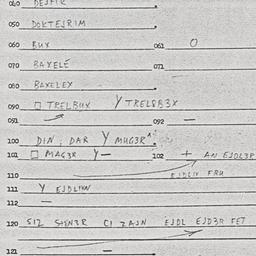 040 DEJFIR
050 DOKTEJRIM
060 BUX 061 O
070 BAXELĒ 071
080 BAXELEX
090 □ TRELBUX Y TRELBB3X
091 092 —
100 DIN, DAR Y MUG3R
101 □ MAG3R Y— 102 + AN EJDL3R
110 EJDLIN FRU
111 Y EJDLINN
112 —
120 SIZ CI ZAJN EJDL EJD3R FET
121 —